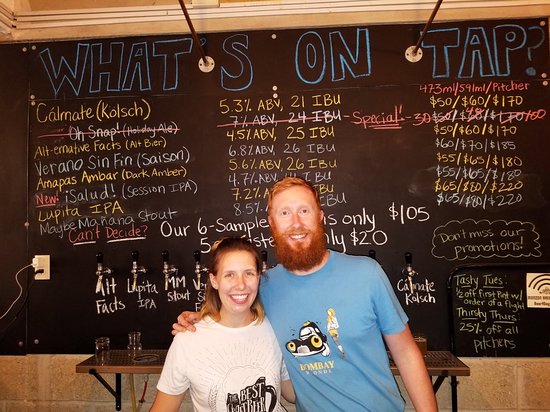 WHAT'S ON TAP?
473ml/591ml/Pitcher
Cálmate (Kolsch) 5.3% ABV, 21 IBU $50/$60/$170
Oh Snap! (Holiday Ale) 7% ABV, 24 IBU Special!
Alt-ernative Facts (Alt Bier) 4.5% ABV, 25 IBU
Verano Sin Fin (Saison) 6.8% ABV, 26 IBU $60/$70/$185
Amapas Ambar (Dark Amber) 5.6% ABV, 26 IBU $55/$65/$180
New! ¡Salud! (Session IPA) 4.7%
Lupita IPA 7.2%
Maybe Mañana Stout 8.5% $65/$80/$220
Can't Decide?
Our 6-Sample is only $105
only $20
Don't miss our
promotions!
Tasty Tues:
1/2 off First Pint w/
order of a flight
Thirsty Thurs:
25% off all
pitchers
Alt
Facts
Lupita
IPA
MM
Stout
Cálmate
Kolsch
THE BEST
CRAFT BEER
BOMBAY